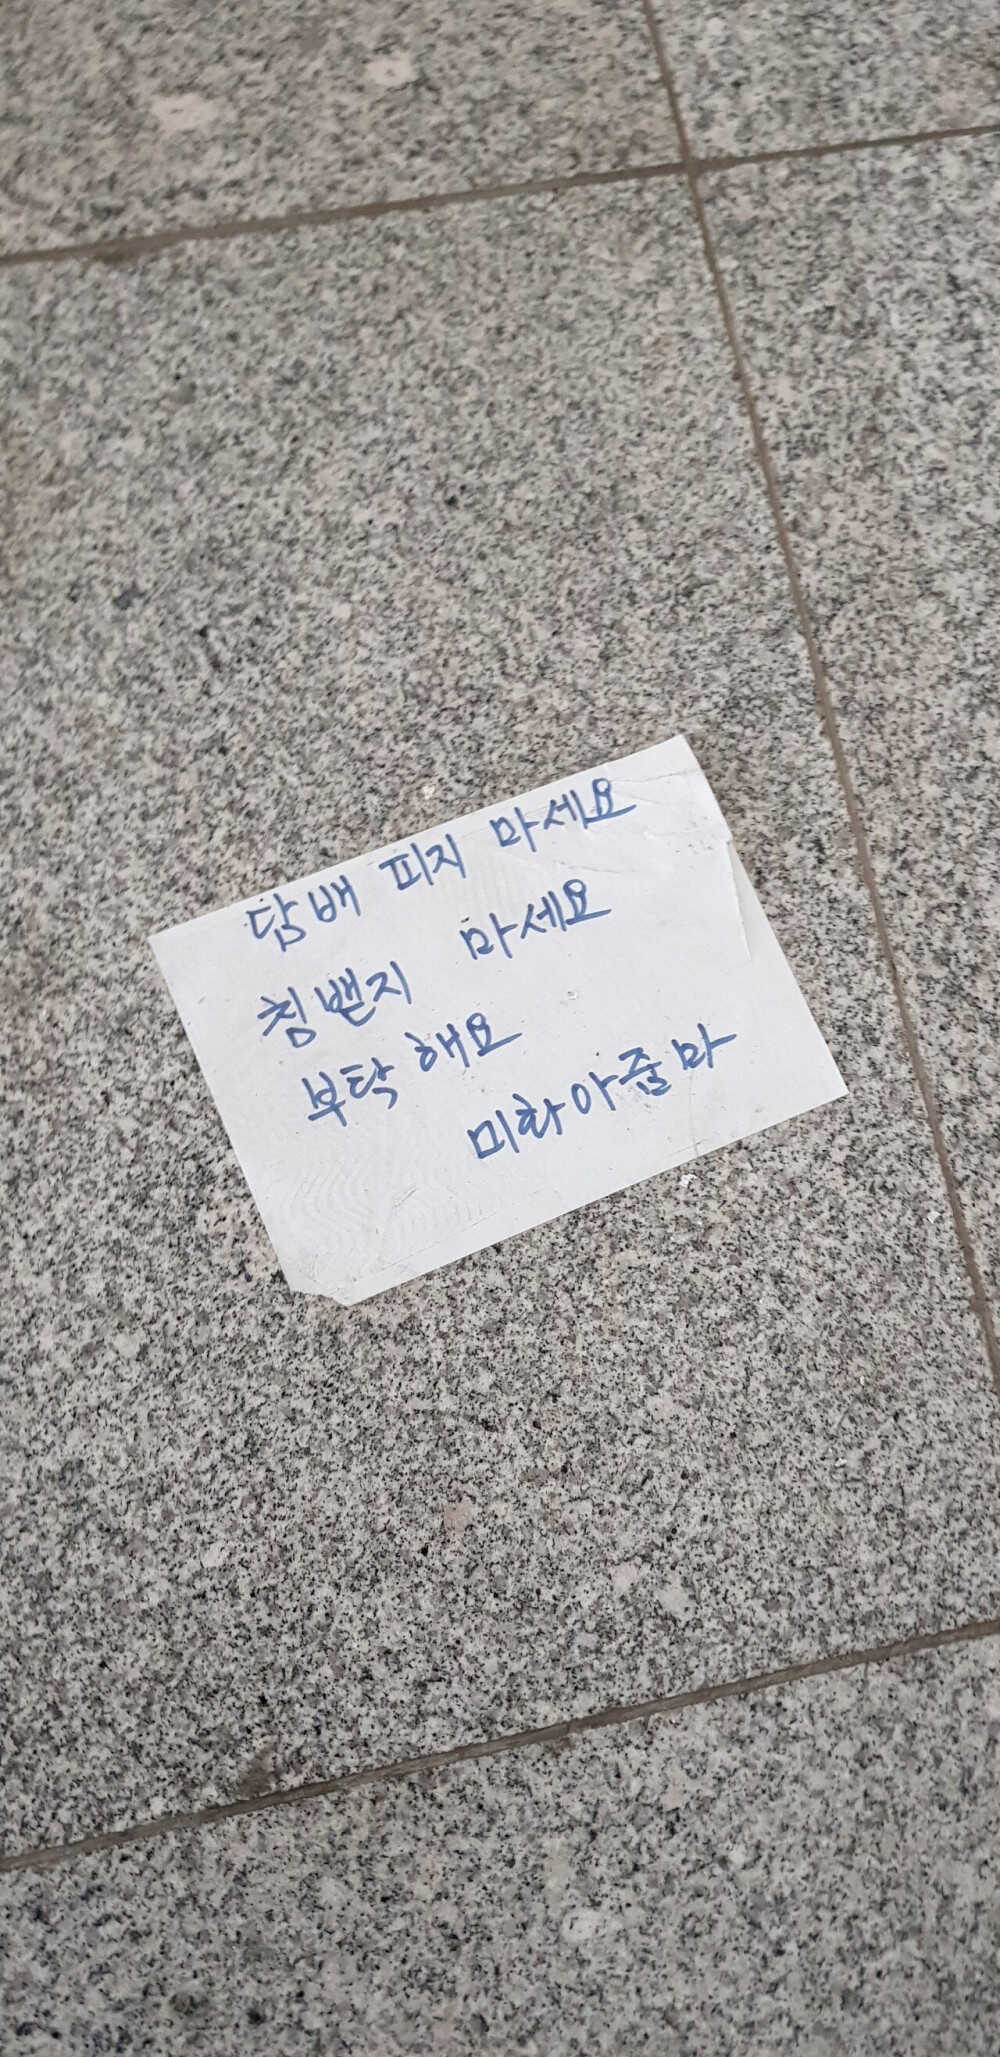 담배 피지 마세요
침밷지 마세요
부탁해요
미화아줌마